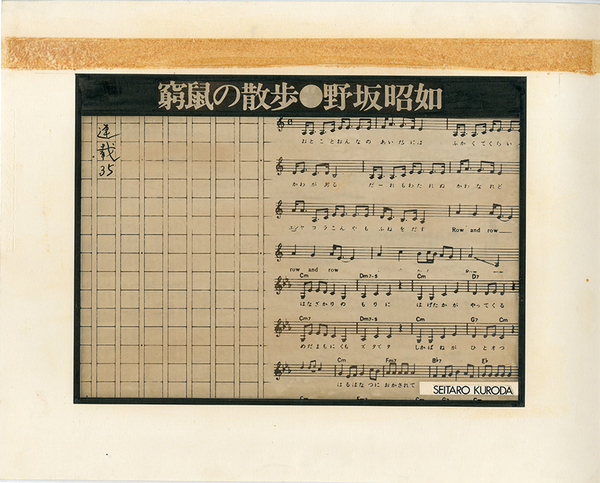 窮鼠の散歩●野坂昭如
連載
35
おとことおんなの あいだには ふかくてくらい
かわが ある だーれもわたれぬ かわなれど
エンヤコラこんやも ふねをだす Row and row
row and row
Cm Dm7-5 Cm D7
はなざかりの もりに はげたかが やってくる
Cm7 Dm7-5 Cm G7 Cm
めだまもにくも ズタズタ しかばねが ひとオつ
Cm Fm7 B♭7 E♭
はるはなつに おかされて
SEITARO KURODA